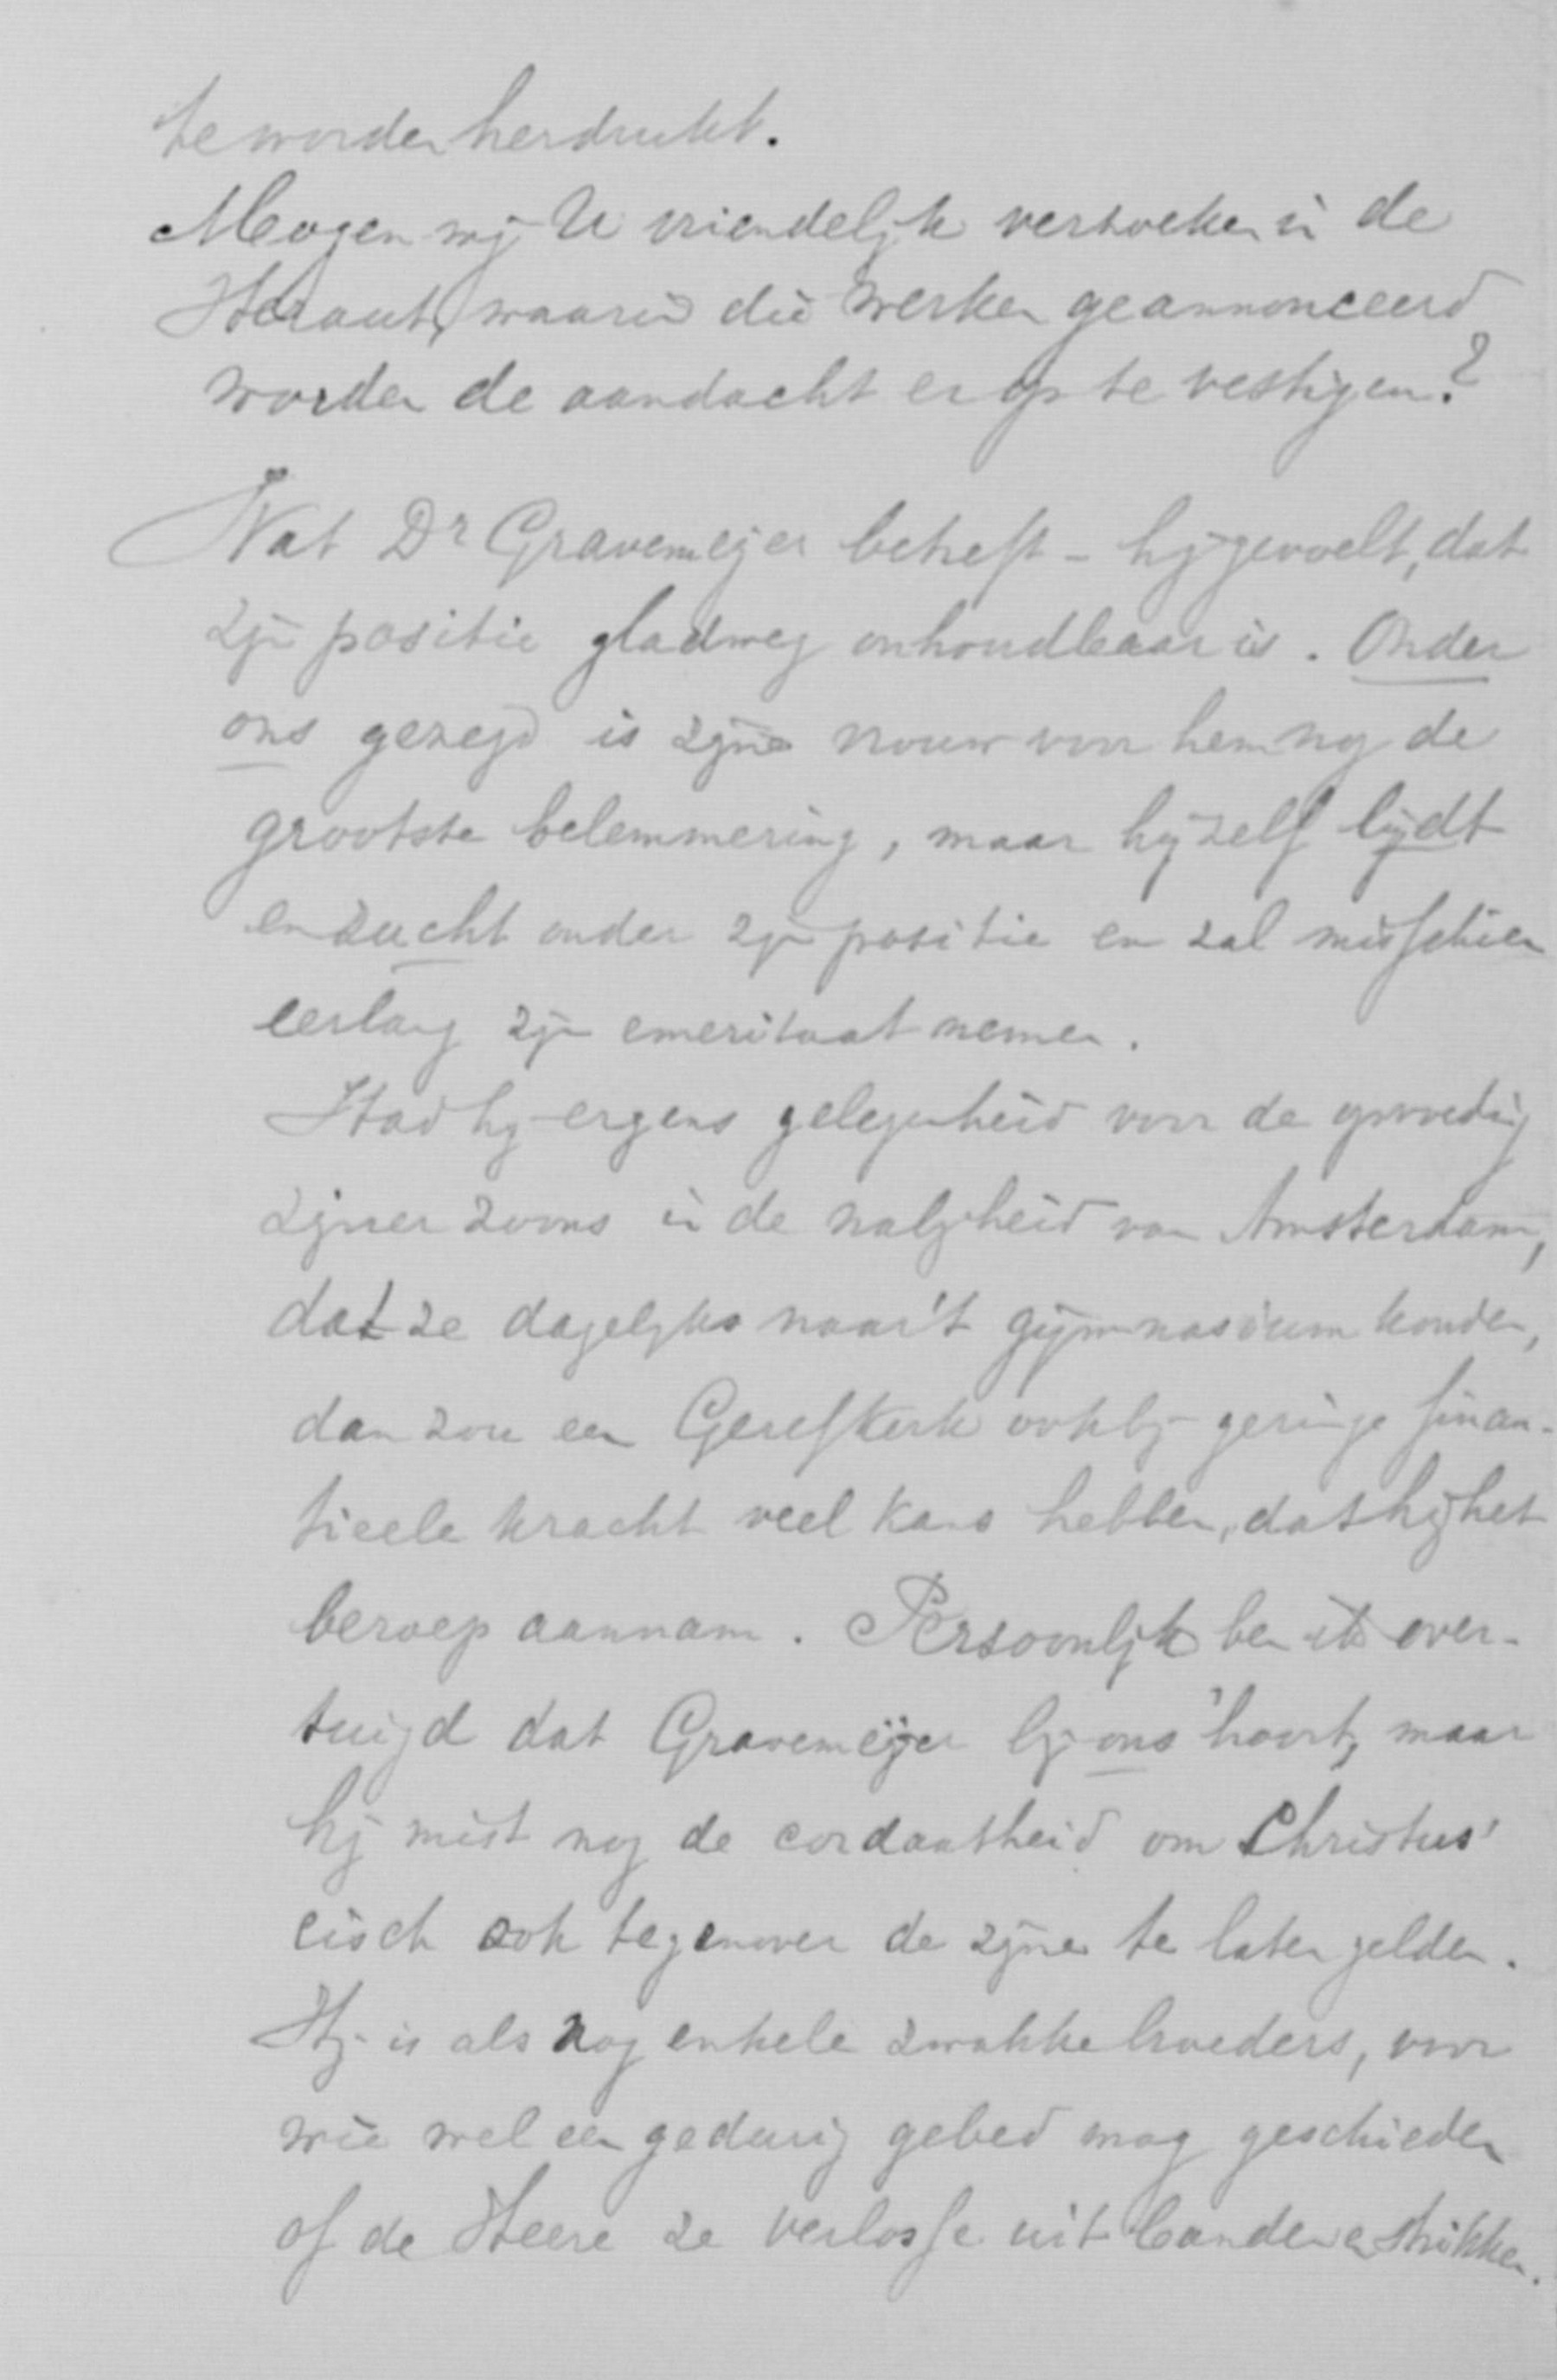 te worden herdrukt.
Mogen wij U vriendelijk verzoeken in de
Heraut, waarin die werken geannonceerd
worden de aandacht er op te vestigen?
Wat Dr Gravemeijer betreft - hij gevoelt, dat
zijn positie gladweg onhoudbaar is. Onder
ons gezegd is zijne vrouw voor hem nog de
grootste belemmering, maar hijzelf lijdt
en zucht onder zijn positie en zal misschien
eerlang zijn emeritaat nemen.
Had hij ergens gelegenheid voor de opvoeding
zijner zoons in de nabijheid van Amsterdam,
dat ze dagelijks naar 't gymnasium konden,
dan zou een Geref Kerk ook bij geringe finan-
tieele kracht veel kans hebben, dat hij het
beroep aannam. Persoonlijk ben ik over-
tuigd dat Gravemeijer bij ons hoort, maar
hij mist nog de cordaatheid om Christus'
eisch ook tegenover de zijnen te laten gelden.
Hij is als nog enkele zwakke broeders, voor
wie wel een gedurig gebed mag geschieden
of de Heere ze verlosse uit banden en strikken.